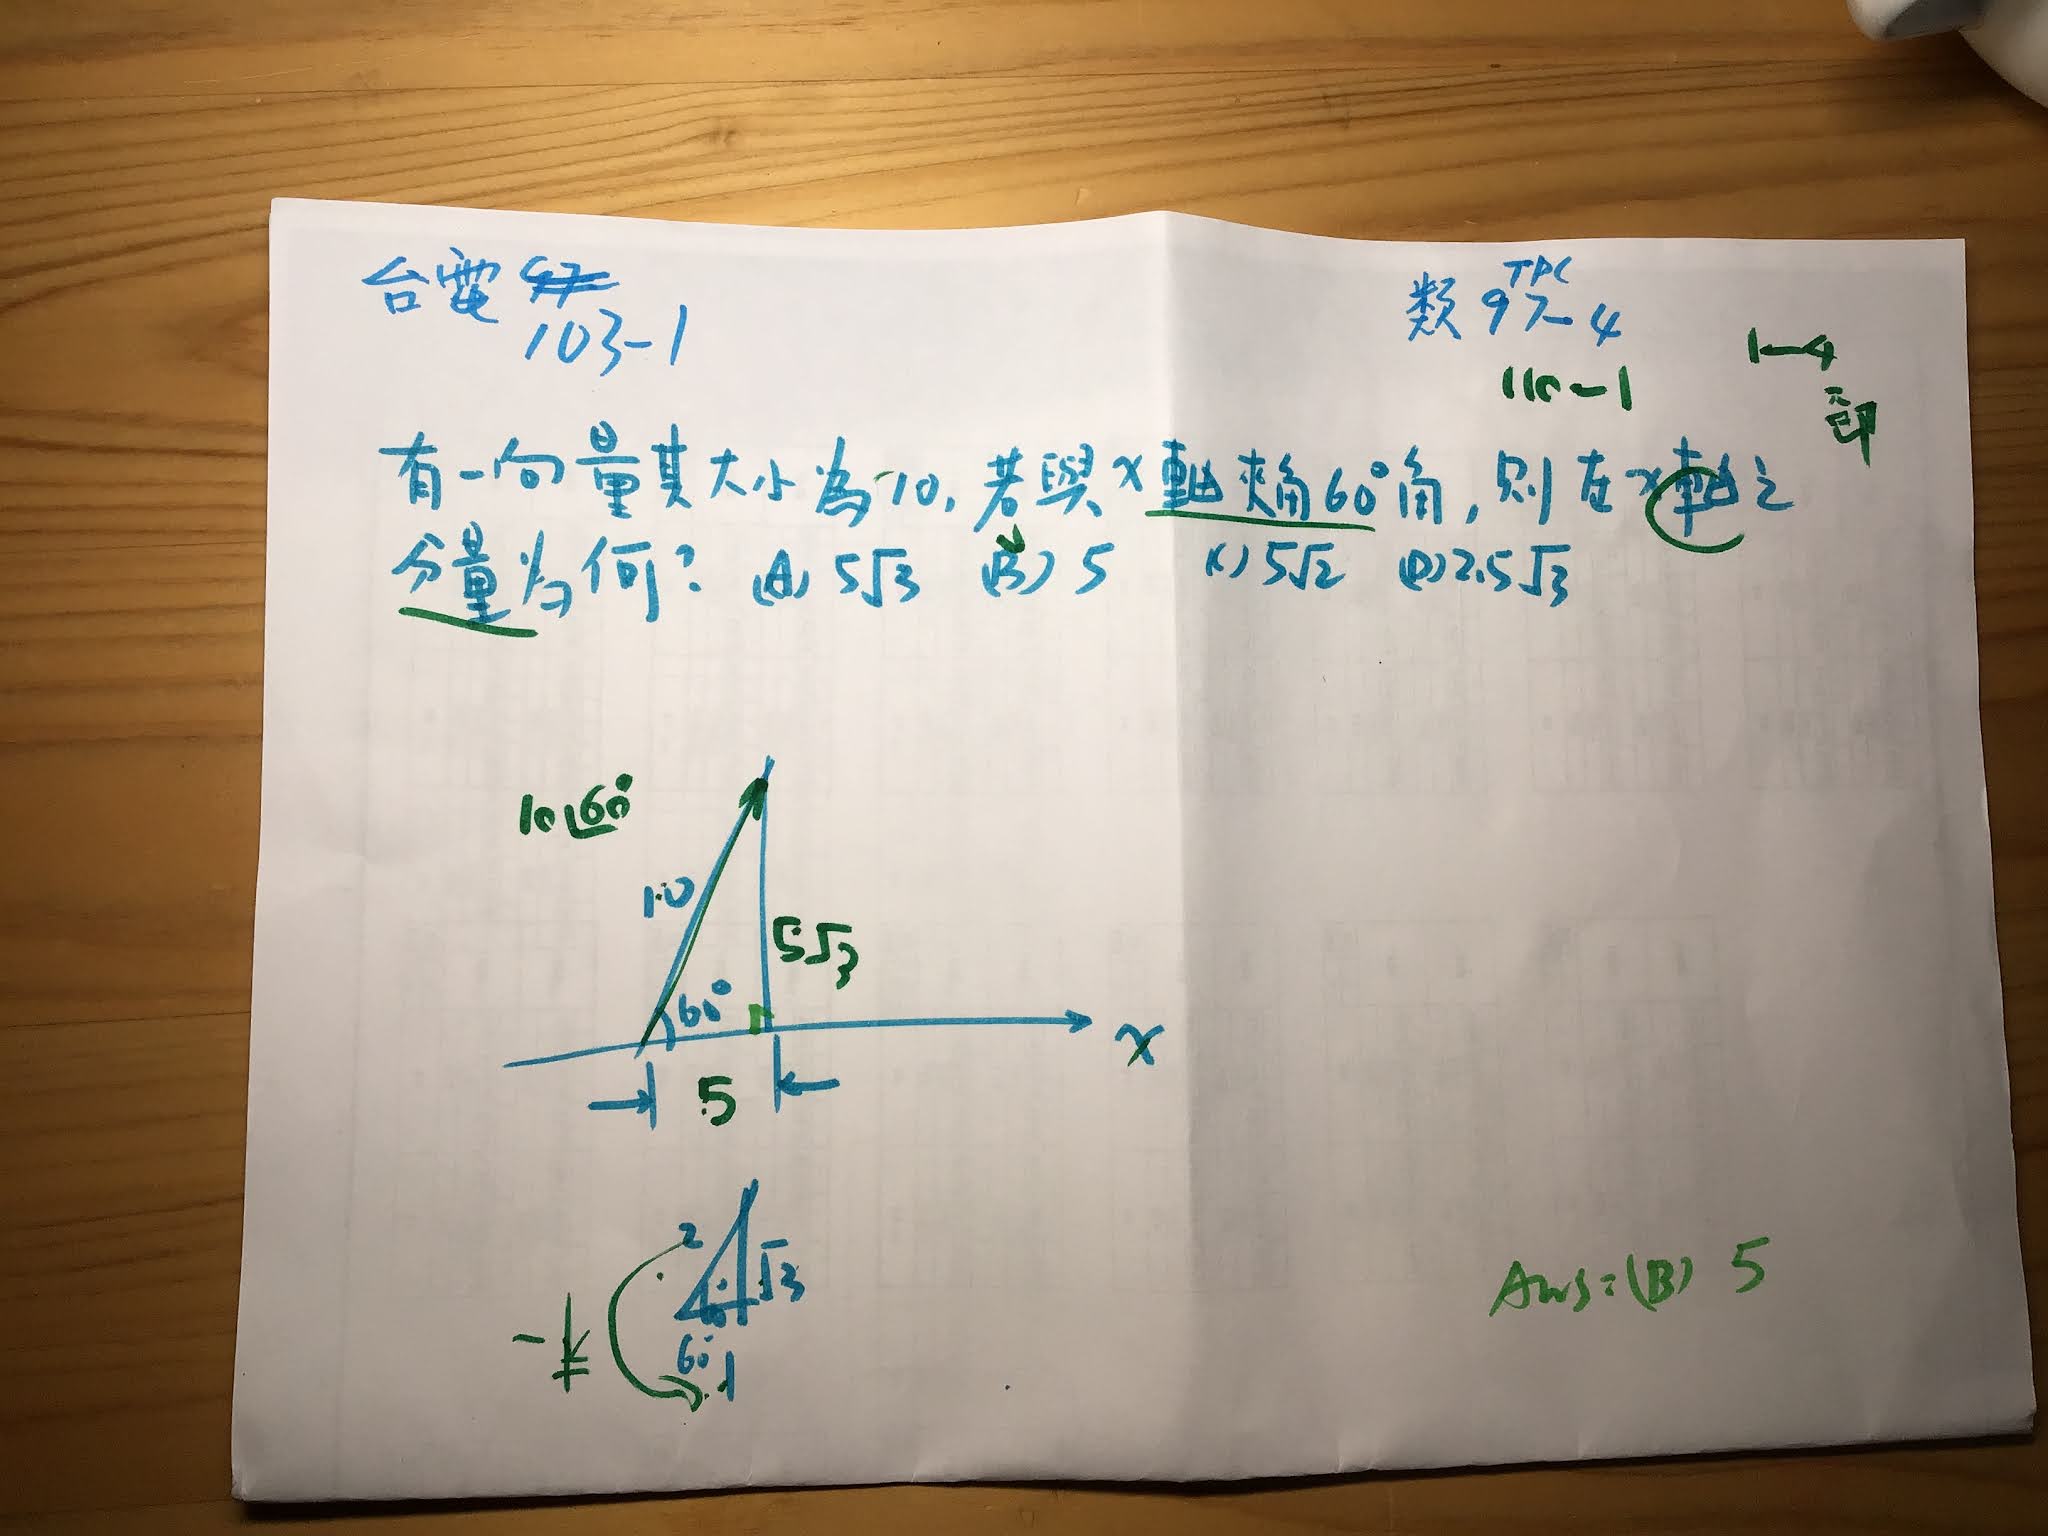 台電
103-1
類 TPC
97-4
110-1
1-4
有一向量其大小為10,若與x軸夾角60°角,則在x軸之
分量为何? (A) 5√3 (B) 5 (C) 5√2 (D) 2.5√3
10∠60°
10
5√3
60°
x
5
2
√3
一半
60°
1
Ans:(B) 5